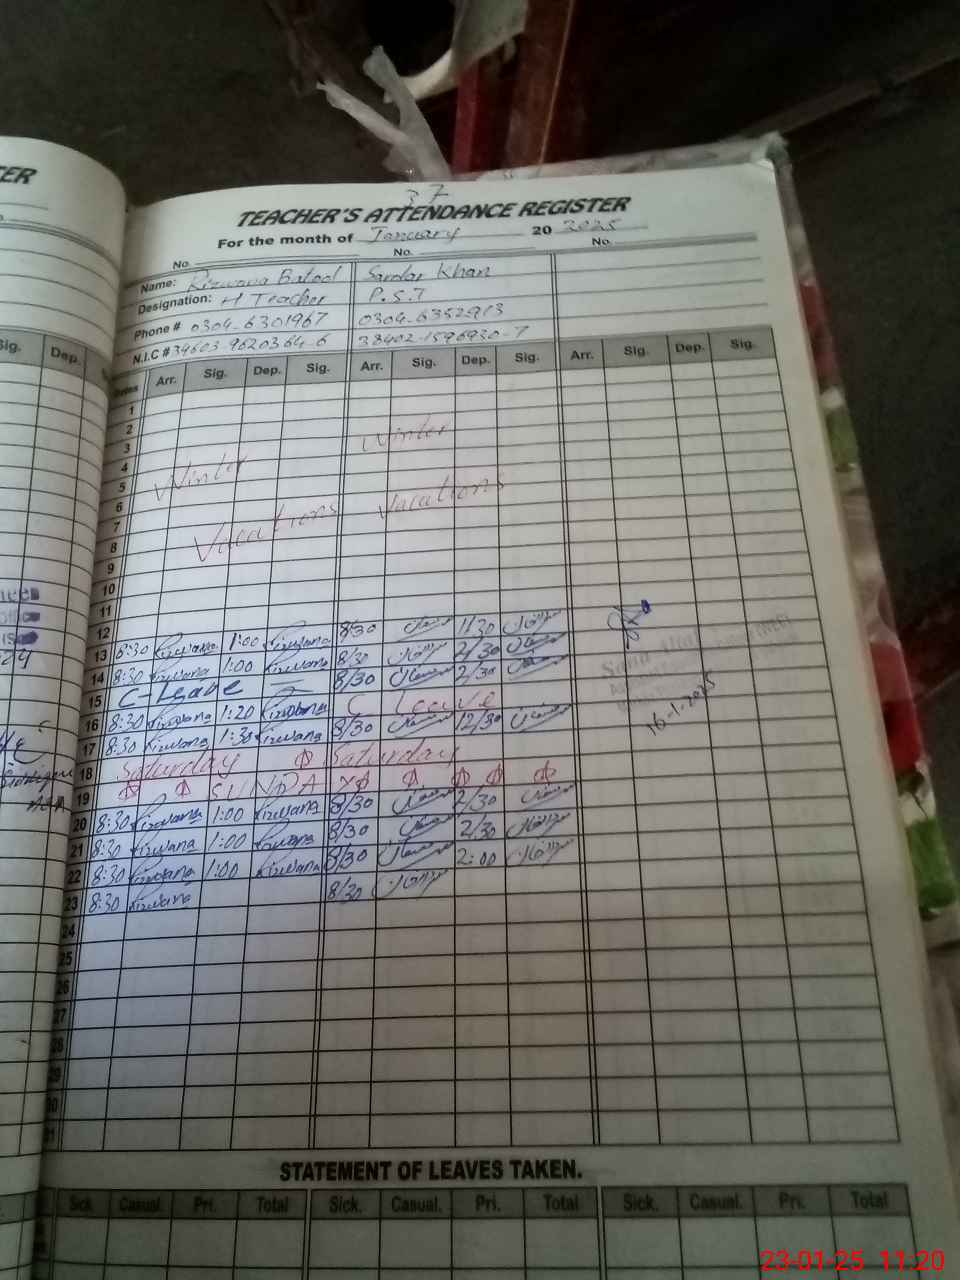 37
TEACHER'S ATTENDANCE REGISTER
For the month of January 2025
No. No. No.
Name: Rizwana Batool Sardar Khan
Designation: H Teacher P.S.T
Phone # 0304-6301967 0304-6352913
N.I.C # 34603-9620364-6 38402-1596930-7
Dates Arr. Sig. Dep. Sig. Arr. Sig. Dep. Sig. Arr. Sig. Dep. Sig.
1
2
3 Winter
4
5 Winter
6 Vacations
7 Vacations
8
9
10
11
12
13 8:30 Rizwana 1:00 Rizwana 8/30 11/30
14 8:30 Rizwana 1:00 Rizwana 8/30 2/30
15 C-Leave 8/30 2/30
16 8:30 Rizwana 1:20 Rizwana C Leave
17 8:30 Rizwana 1:30 Rizwana 8/30 12/30
16-1-2025
18 Saturday Saturday
19 SUNDAY
20 8:30 Rizwana 1:00 Rizwana 8/30 2/30
21 8:30 Rizwana 1:00 Rizwana 8/30 2/30
22 8:30 Rizwana 1:00 Rizwana 8/30 2:00
23 8:30 Rizwana 8/30
24
25
26
27
28
29
30
31
STATEMENT OF LEAVES TAKEN.
Sick. Casual. Pri. Total Sick. Casual. Pri. Total Sick. Casual. Pri. Total
23-01-25 11:20